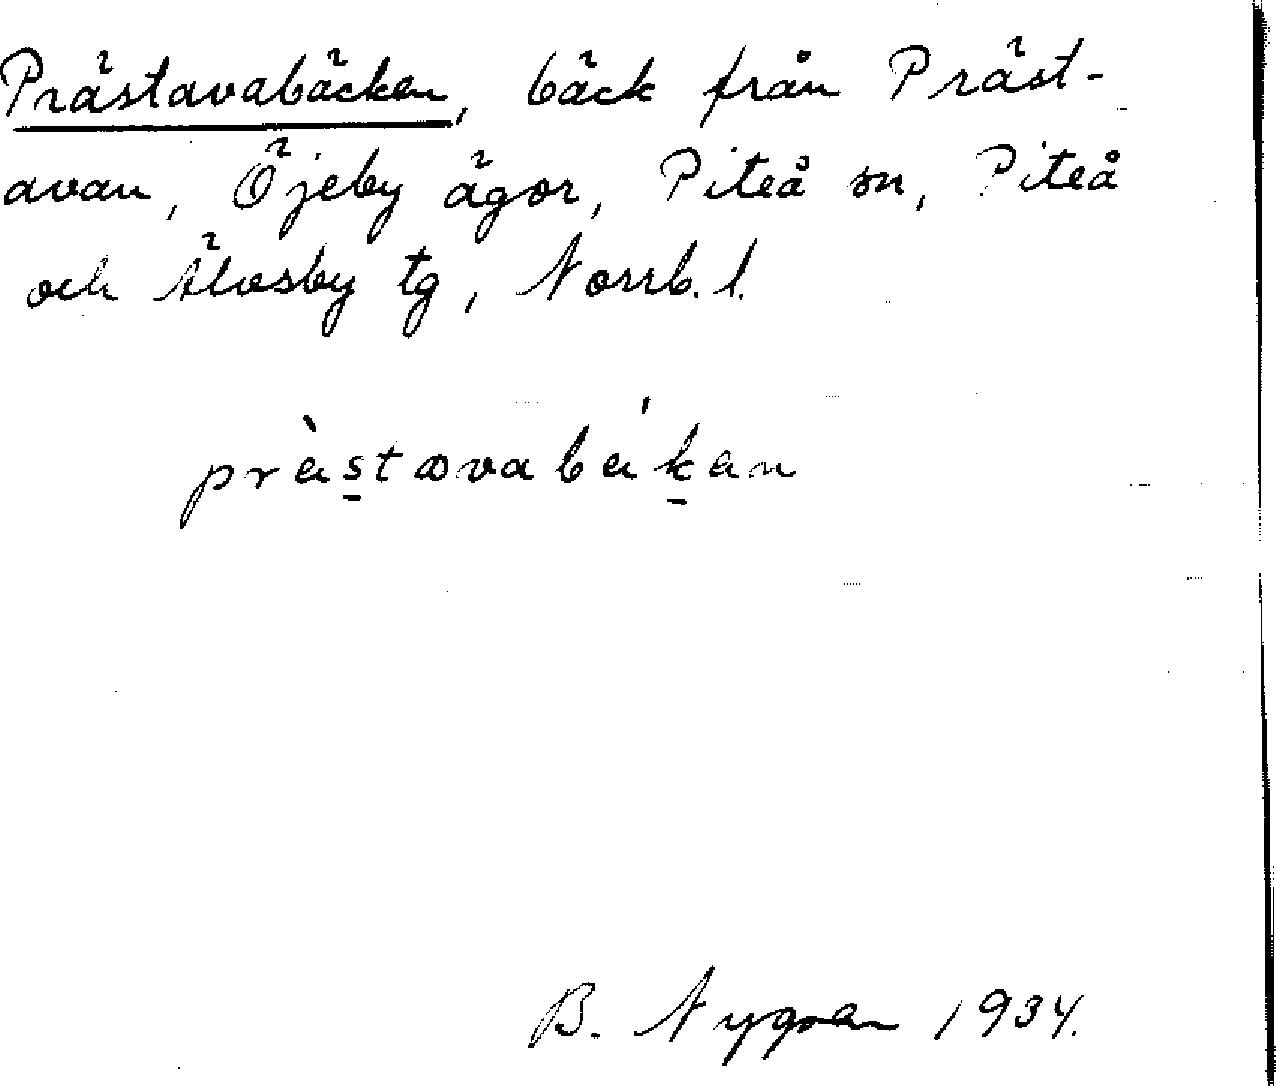 Prästavabäcken, bäck från Präst-
avan, Öjeby ägor, Piteå sn, Piteå
och Älvsby tg, Norrb. l.
prὰstavabäkan
B. Nygren 1934.